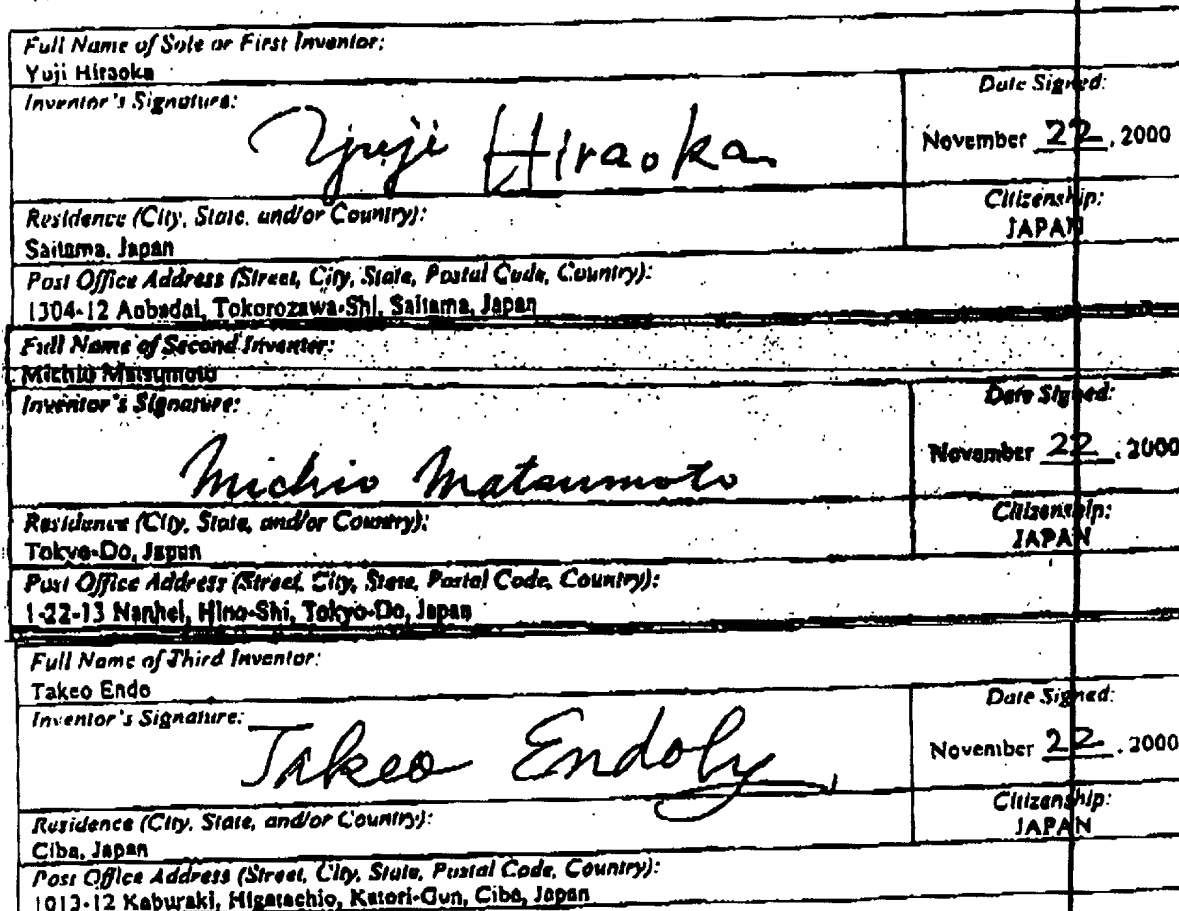 Full Name of Sole or First Inventor:
Yuji Hiraoka
Inventor's Signature:
Yuji Hiraoka
Date Signed:
November 22, 2000
Residence (City, State, and/or Country):
Saitama, Japan
Citizenship:
JAPAN
Post Office Address (Street, City, State, Postal Code, Country):
1304-12 Aobadai, Tokorozawa-Shi, Saitama, Japan
Full Name of Second Inventor:
Michio Matsumoto
Inventor's Signature:
Michio Matsumoto
Date Signed:
November 22, 2000
Residence (City, State, and/or Country):
Tokyo-Do, Japan
Citizenship:
JAPAN
Post Office Address (Street, City, State, Postal Code, Country):
1-22-13 Nanhei, Hino-Shi, Tokyo-Do, Japan
Full Name of Third Inventor:
Takeo Endo
Inventor's Signature:
Takeo Endo
Date Signed:
November 22, 2000
Residence (City, State, and/or Country):
Ciba, Japan
Citizenship:
JAPAN
Post Office Address (Street, City, State, Postal Code, Country):
1013-12 Kaburaki, Higatachio, Katori-Gun, Ciba, Japan